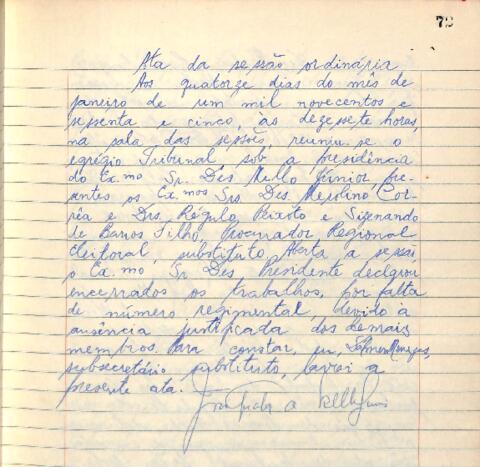 72
Ata da sessão ordinária
Aos quatorze dias do mês de
janeiro de um mil novecentos e
sessenta e cinco, às dezessete horas,
na sala das sessões, reuniu-se o
egrégio Tribunal, sob a presidência
do Ex.mo Sr. Des Mello Júnior, pre-
sentes os Ex.mos Srs. Des. Merolino Cor-
rêia e Drs. Régulo Peixoto e Sizenando
de Barros Filho, Procurador Regional
Eleitoral, substituto. Aberta a sessão,
o Ex.mo Sr. Des. Presidente declarou
encerrados os trabalhos, por falta
de número regimental, devido à
ausência justificada dos demais
membros. Para constar, eu,
subsecretário substituto, lavrei a
presente ata.